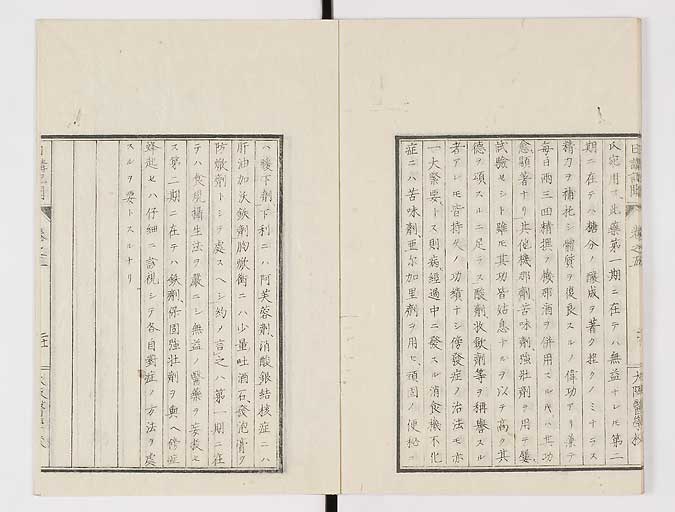 日講記聞 巻之五 大阪醫學校
氏宛用ス此藥第一期ニ在テハ無益ナレモ第二
期ニ在テハ糖分ノ釀成ヲ著クノミナラス
精力ヲ補托シ體質ヲ復良スルノ偉功アリ兼テ
每日兩三回精撰ノ幾那酒ヲ併用スル片ハ其功
愈顕著ナリ其他機那劑苦味劑強壯劑ヲ用テ屢
試驗セシト雖モ其功皆姑息ナルヲ以テ高ク其
德ヲ頌スルニ足ラス酸劑收歛劑等ヲ稱譽スル
者アレモ皆持久ノ功績ナシ傍發症ノ治法モ亦
一大緊要トス則病經過中ニ發スル消食機不化
症ニハ苦味劑亜尔加里劑ヲ用ヒ頑固ノ便秘ニ
ハ緩下劑下利ニハ阿芙蓉劑、消酸銀結核症ニハ
肝油加沃鉄劑胸焮衝ニハ少量吐酒石、發泡膏ヲ
防焮劑トシテ處スヘシ約ノ言之ハ第一期ニ在
テハ食規攝生法ヲ嚴ニシ無益ノ醫藥ヲ妄投セ
ス第二期ニ在テハ鉄劑、保固強壯劑ヲ與ヘ傍症
蜂起セハ仔細ニ診視シテ各自對症ノ方法ヲ處
スルヲ要トスルナリ